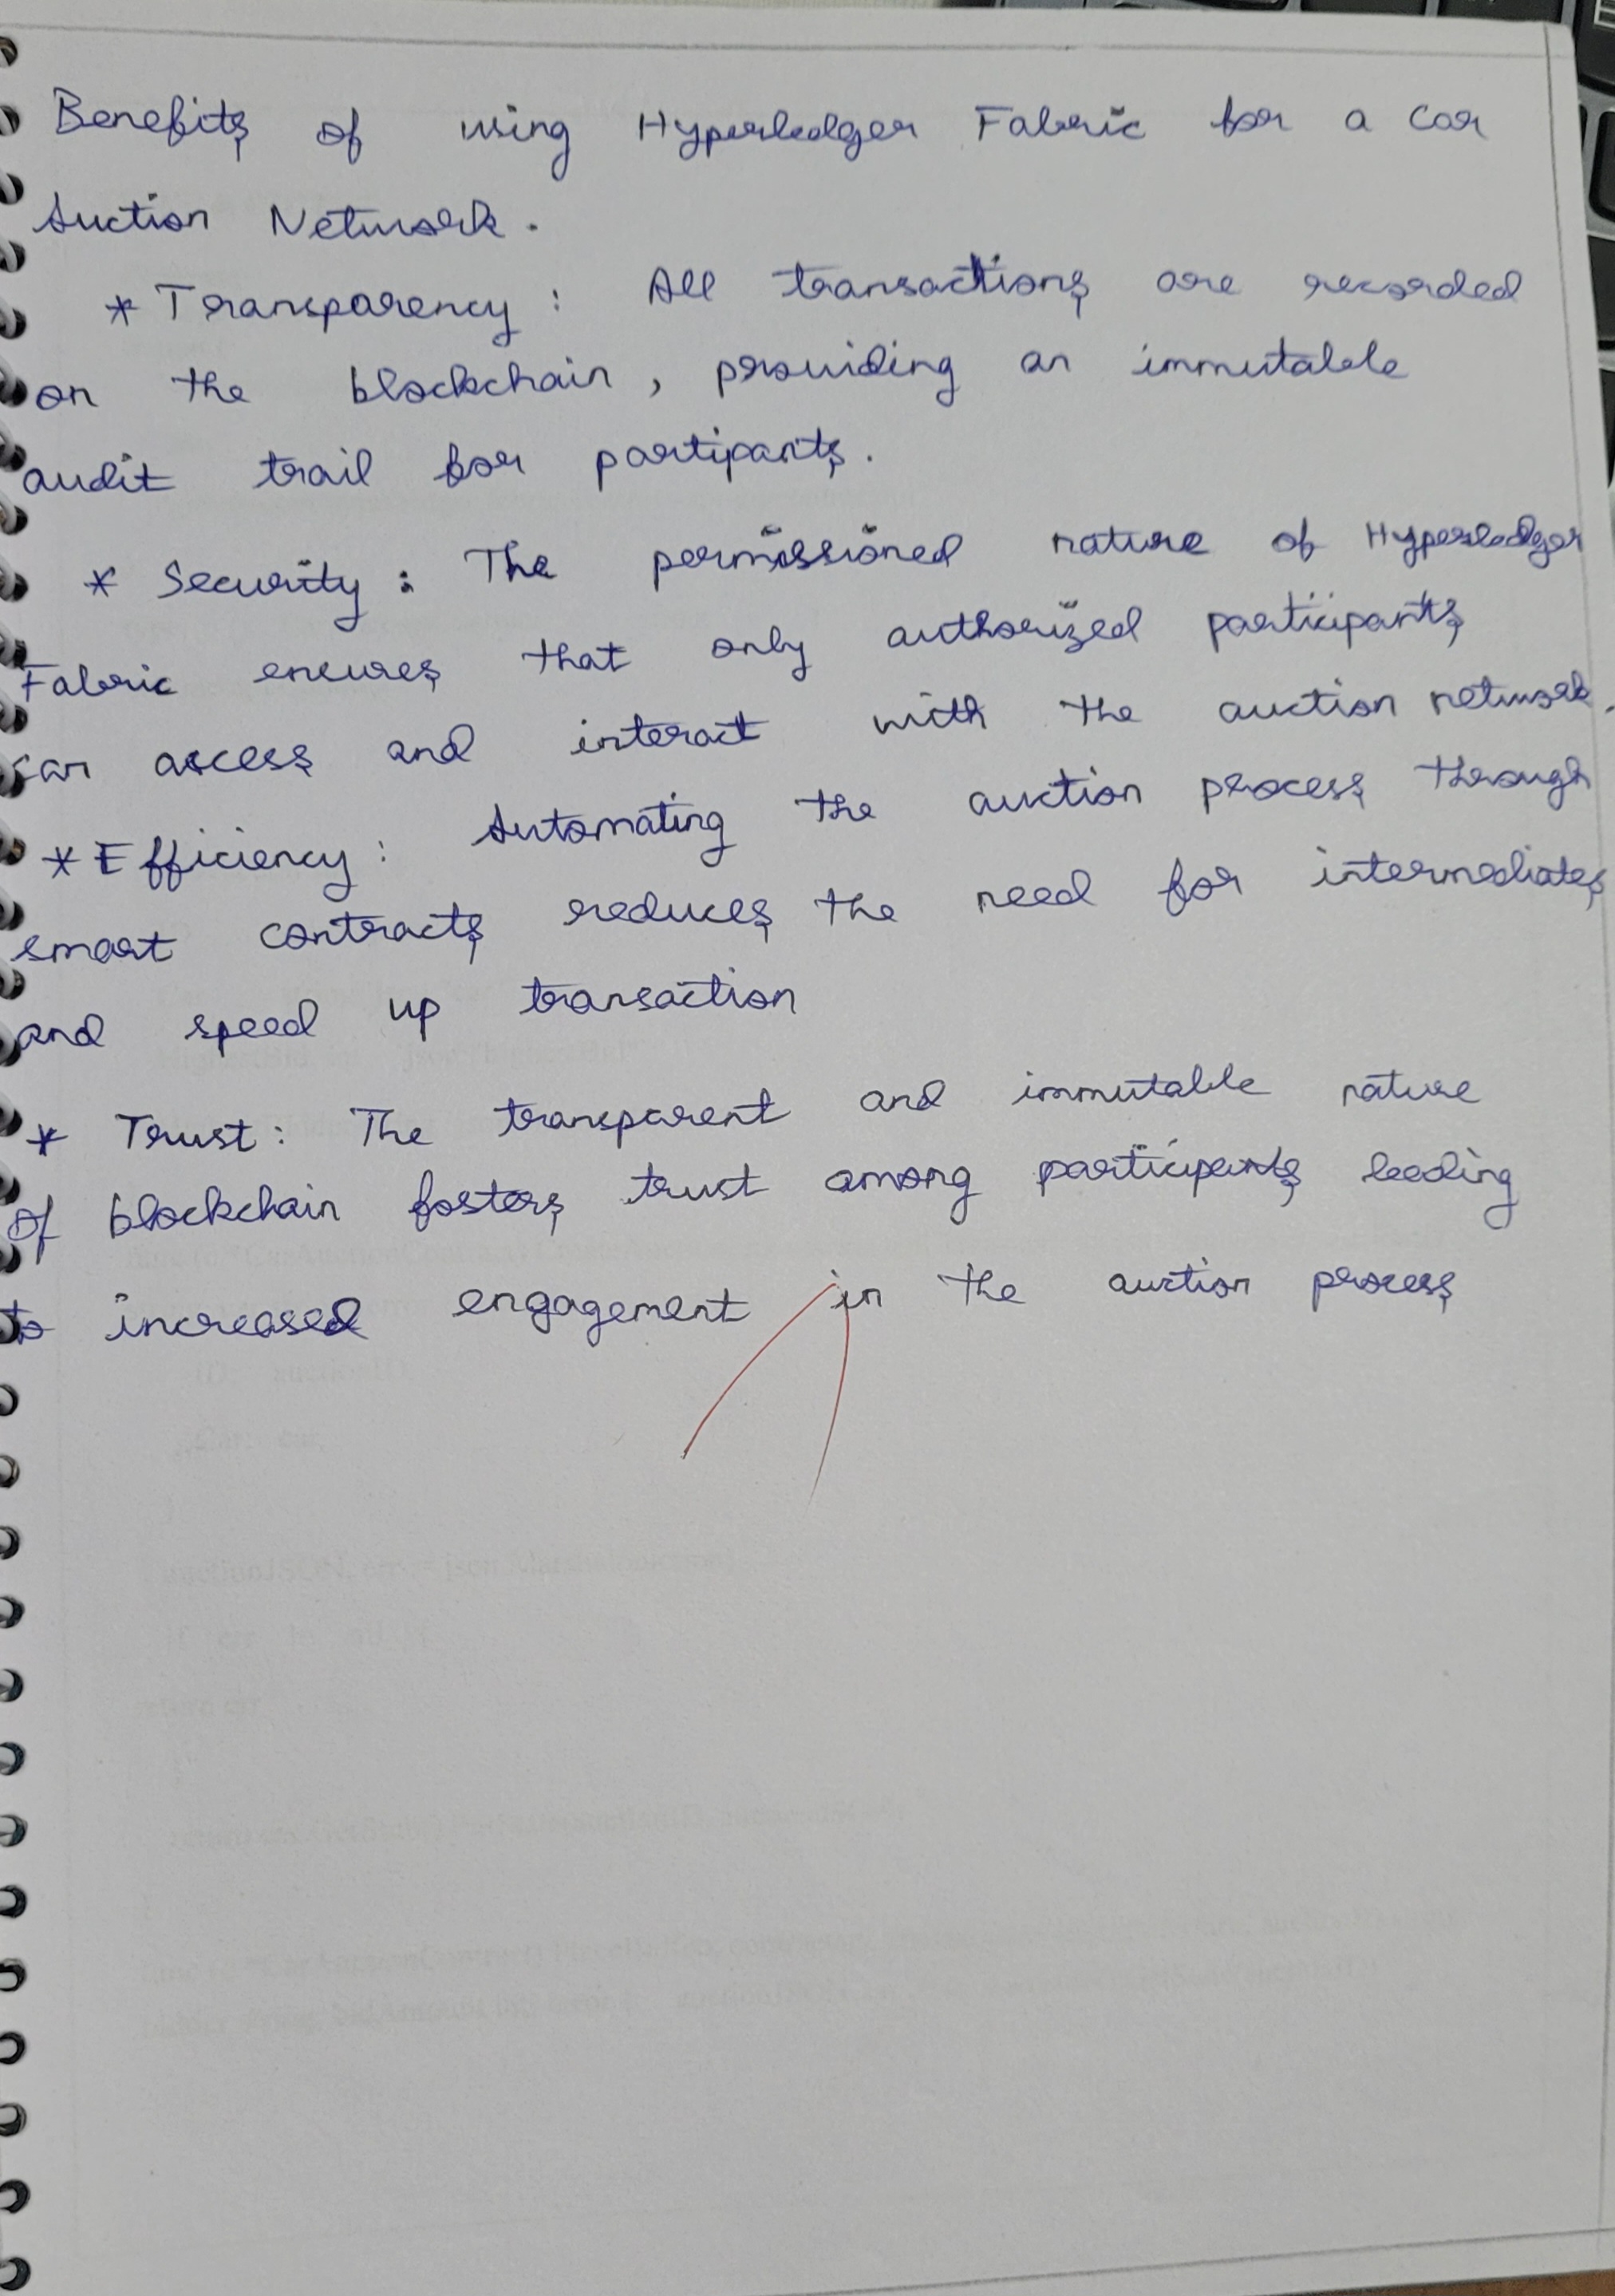 Benefits of using Hyperledger Fabric for a Car
Auction Network.
* Transparency : All transactions are recorded
on the blockchain, providing an immutable
audit trail for partipants.
* Security : The permissioned nature of Hyperledger
Fabric ensures that only authorized participants
can access and interact with the auction network.
* Efficiency : Automating the auction process through
smart contracts reduces the need for intermediates
and speed up transaction
* Trust : The transparent and immutable nature
of blockchain fosters trust among participants leading
to increased engagement in the auction process